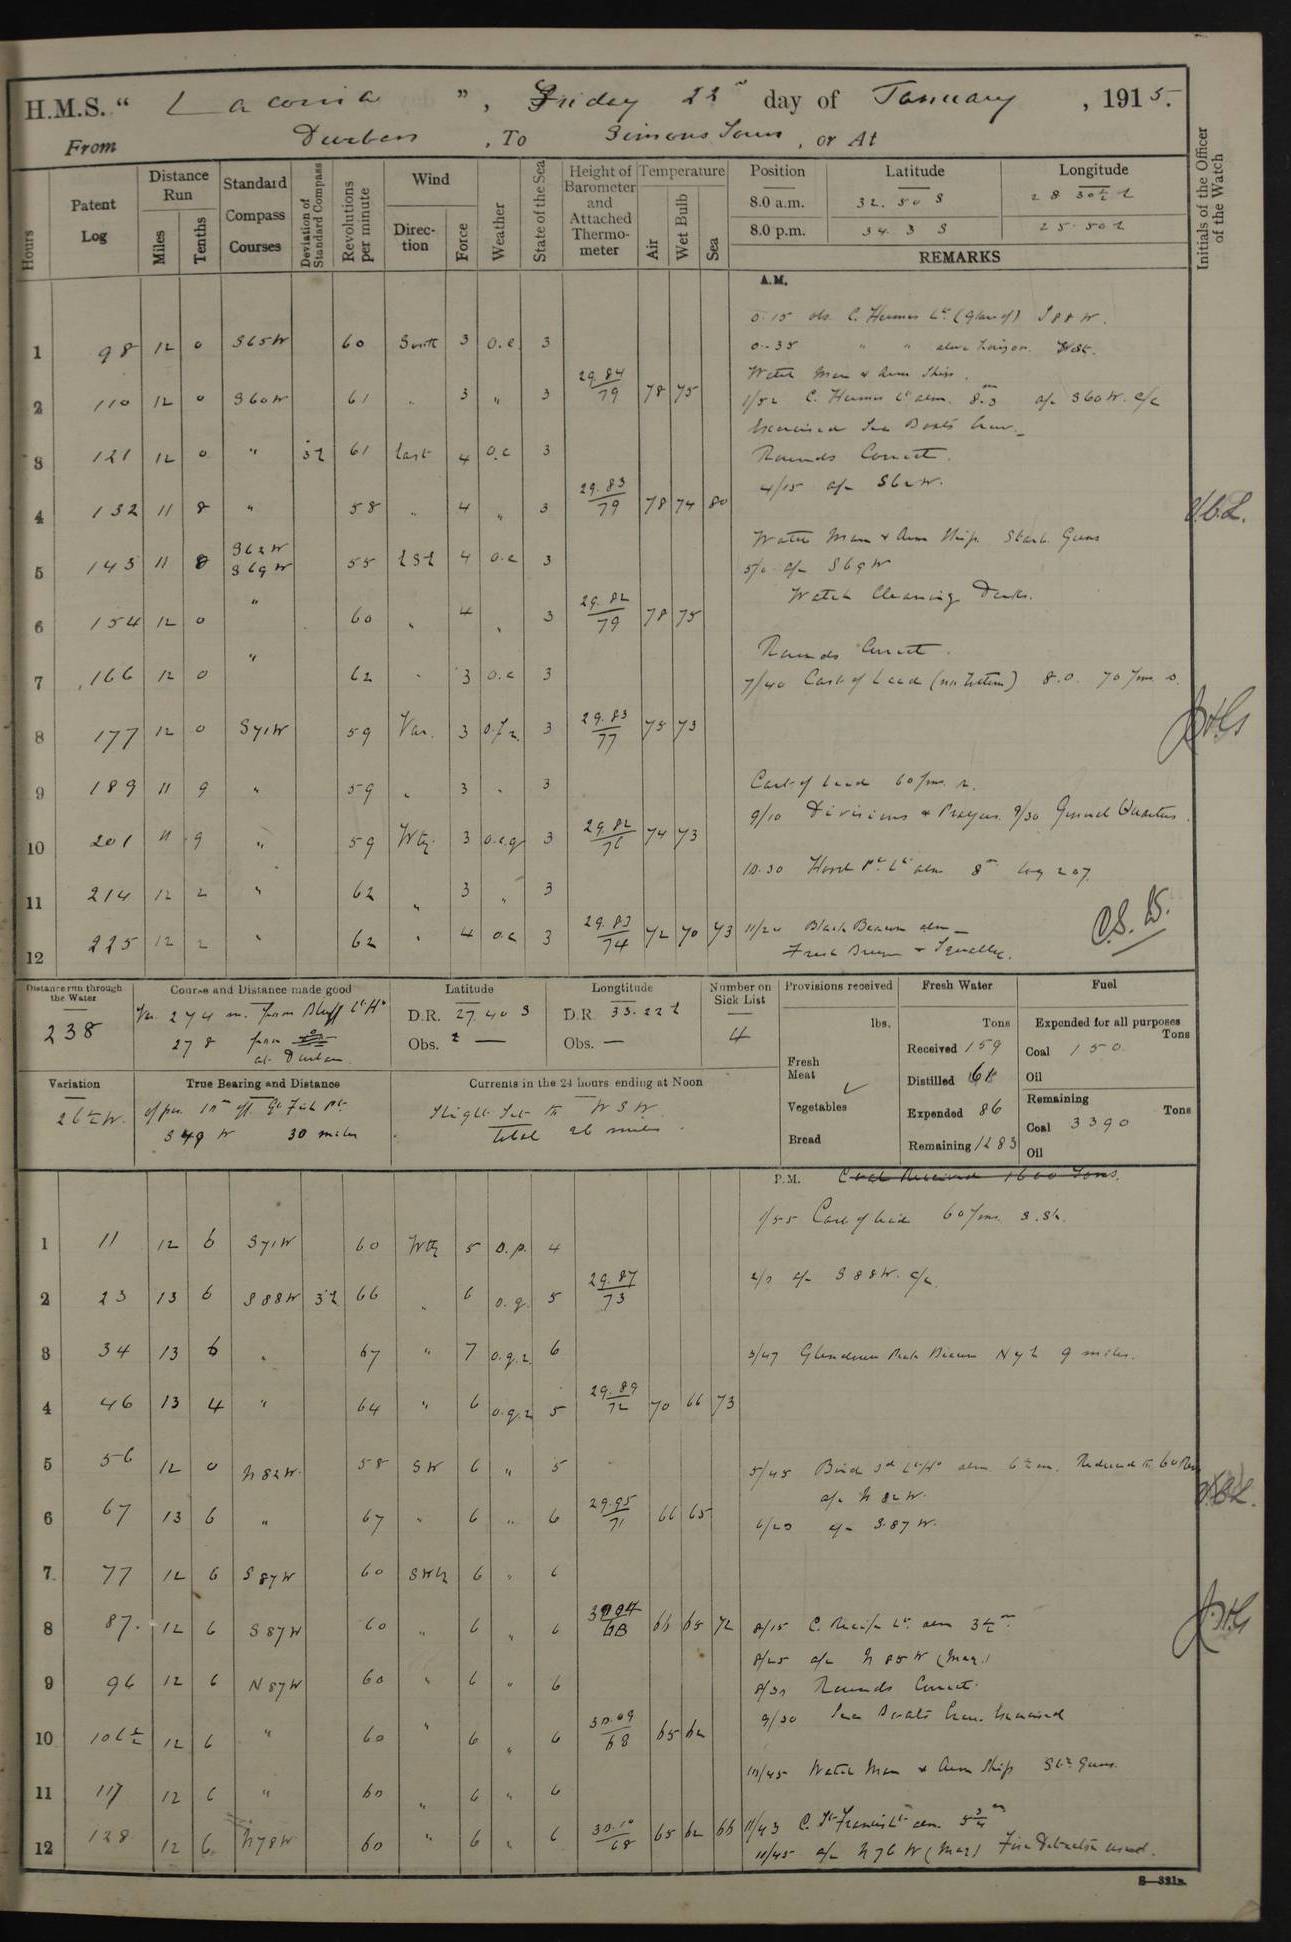 H.M.S. “ Laconia ”, Friday 22nd day of January, 1915.
From Durban, To Simons Town, or At
Hours
Patent Log
Distance Run
Miles
Tenths
Standard Compass Courses
Deviation of Standard Compass
Revolutions per minute
Wind
Direction
Force
Weather
State of the Sea
Height of Barometer and Attached Thermometer
Temperature
Air
Wet Bulb
Sea
Position Latitude Longitude
8.0 a.m. 32. 50 S 28 30½ E
8.0 p.m. 34. 3 S 25. 50 E
REMARKS
Initials of the Officer of the Watch
A.M.
0.15 obs C. Hermes Lt. (glare of) S 88 W.
0.35 " " above horizon West.
1 98 12 0 S65W 60 South 3 o.c. 3
Watch Man & Arm Ship.
2 110 12 0 S60W 61 " 3 " 3 29.84/79 78 75 1/52 C. Hermes Lt abm. a/c S60W.
Exercised Sea Boats Crew.
3 121 12 0 " 3E 61 East 4 o.c 3 Rounds Correct.
4/15 a/c S62W.
4 132 11 8 " 58 " 4 " 3 29.83/79 78 74 80
Watch Man & Arm Ship. Starb. Guns
5 143 11 8 S62W S69W 55 ESE 4 o.c 3 5/0 a/c S69W
Watch Cleaning Decks.
6 154 12 0 " 60 " 4 " 3 29.82/79 78 75
Rounds Correct.
7 166 12 0 " 62 " 3 o.c 3 7/40 Cast of Lead (no bottom) 8.0. 70 fms s.
8 177 12 0 S71W 59 Var. 3 3 29.83/77 75 73
9 189 11 9 " 59 " 3 " 3 Cast of Lead 60 fms. s.
9/10 Divisions & Prayers. 9/30 General Quarters.
10 201 11 9 " 59 Wly 3 o.c.q 3 29.82/76 74 73
10.30 Hood Pt. Lt abm 8m log 207.
11 214 12 2 " 62 " 3 " 3
12 225 12 2 " 62 " 4 o.c 3 29.83/74 72 70 73 11/20 Black Beacon abm
Fresh Breeze & Squally.
Distance run through the Water
238
Course and Distance made good
Var. 274 m. from Bluff Lt Ho
278 from
at Durban
Latitude
D.R. 27.40 S
Obs. —
Longtitude
D.R. 33.22 E
Obs. —
Number on Sick List
4
Provisions received
lbs.
Fresh Meat
Vegetables
Bread
Fresh Water
Tons
Received 159
Distilled
Expended 86
Remaining 1283
Fuel
Expended for all purposes
Tons
Coal 150
Oil
Remaining
Tons
Coal 3390
Oil
Variation
26½W.
True Bearing and Distance
off Gt Fish Pt.
S 49 W 30 miles
Currents in the 24 hours ending at Noon
Slight Set to W S W.
Total 26 miles.
P.M. Coal Received 1600 Tons.
1/55 Cast of lead 60 fms. s.sh.
1 11 12 6 S71W 60 Wly 5 o.p. 4
2/0 a/c S88W.
2 23 13 6 S88W 3E 66 " 6 o.q. 5 29.87/73
3 34 13 6 " 67 " 7 6 3/47 Glendower Peak Beacon N 7 E 9 miles.
4 46 13 4 " 64 " 6 5 29.89/72 70 66 73
5 56 12 0 N82W. 58 SW 6 " 5 5/45 Bird Isd Lt Ho abm 6½m. Reduced to 60 Revs
a/c N 82 W.
6 67 13 6 " 67 " 6 " 6 29.95/71 66 65 6/20 a/c S.87 W.
7 77 12 6 S87W 60 6 " 6
8 87 12 6 S87W 60 " 6 " 6 66 65 72 8/15 C. Recife Lt. abm 3½m
8/25 a/c N 85W (Mag.)
9 96 12 6 N87W 60 " 6 " 6 8/30 Rounds Correct.
9/30 Sea Boats Crew Exercised
10 106½ 12 6 " 60 " 6 " 6 30.09/68 65 62
10/45 Watch Man & Arm Ship Stb Guns.
11 117 12 6 " 60 " 6 " 6
12 128 12 6 N78W 60 " 6 " 6 30.10/68 65 62 66 11/43 C. St Francis Lt abm 5¾m
11/45 a/c N 76 W (Mag)
S—321B.